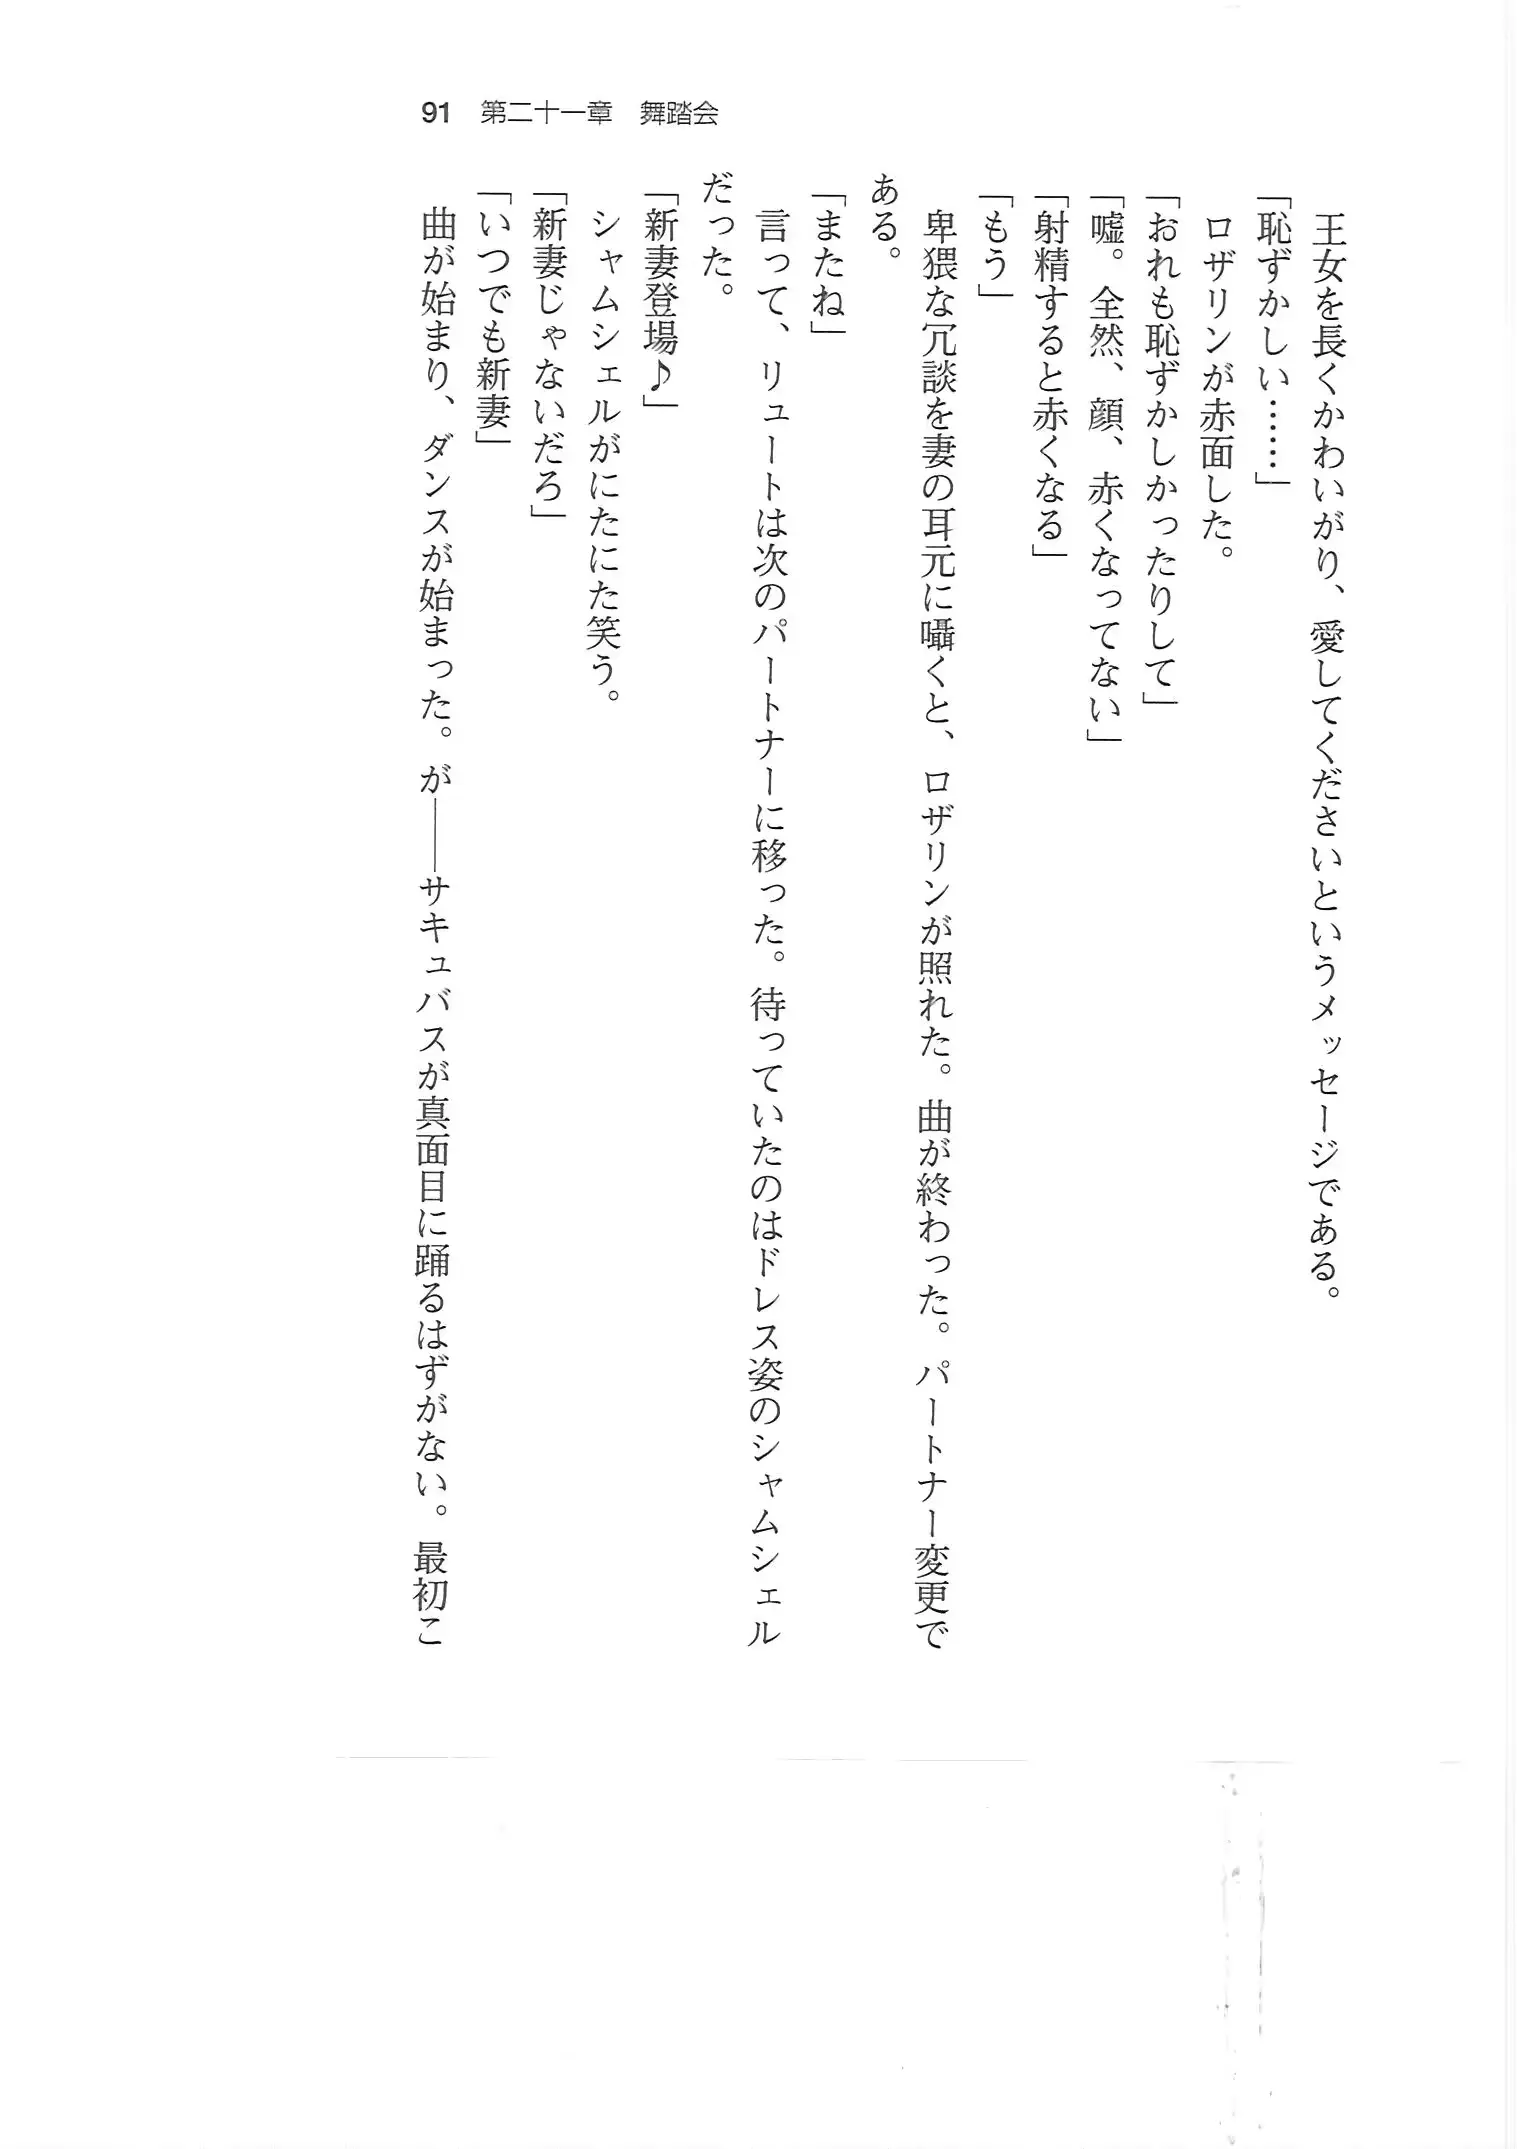 91 第二十一章 舞踏会
王女を長くかわいがり、愛してくださいというメッセージである。
「恥ずかしい……」
ロザリンが赤面した。
「おれも恥ずかしかったりして」
「嘘。全然、顔、赤くなってない」
「射精すると赤くなる」
「もう」
卑猥な冗談を妻の耳元に囁くと、ロザリンが照れた。曲が終わった。パートナー変更で
ある。
「またね」
言って、リュートは次のパートナーに移った。待っていたのはドレス姿のシャムシェル
だった。
「新妻登場♪」
シャムシェルがにたにた笑う。
「新妻じゃないだろ」
「いつでも新妻」
曲が始まり、ダンスが始まった。が――サキュバスが真面目に踊るはずがない。最初こ